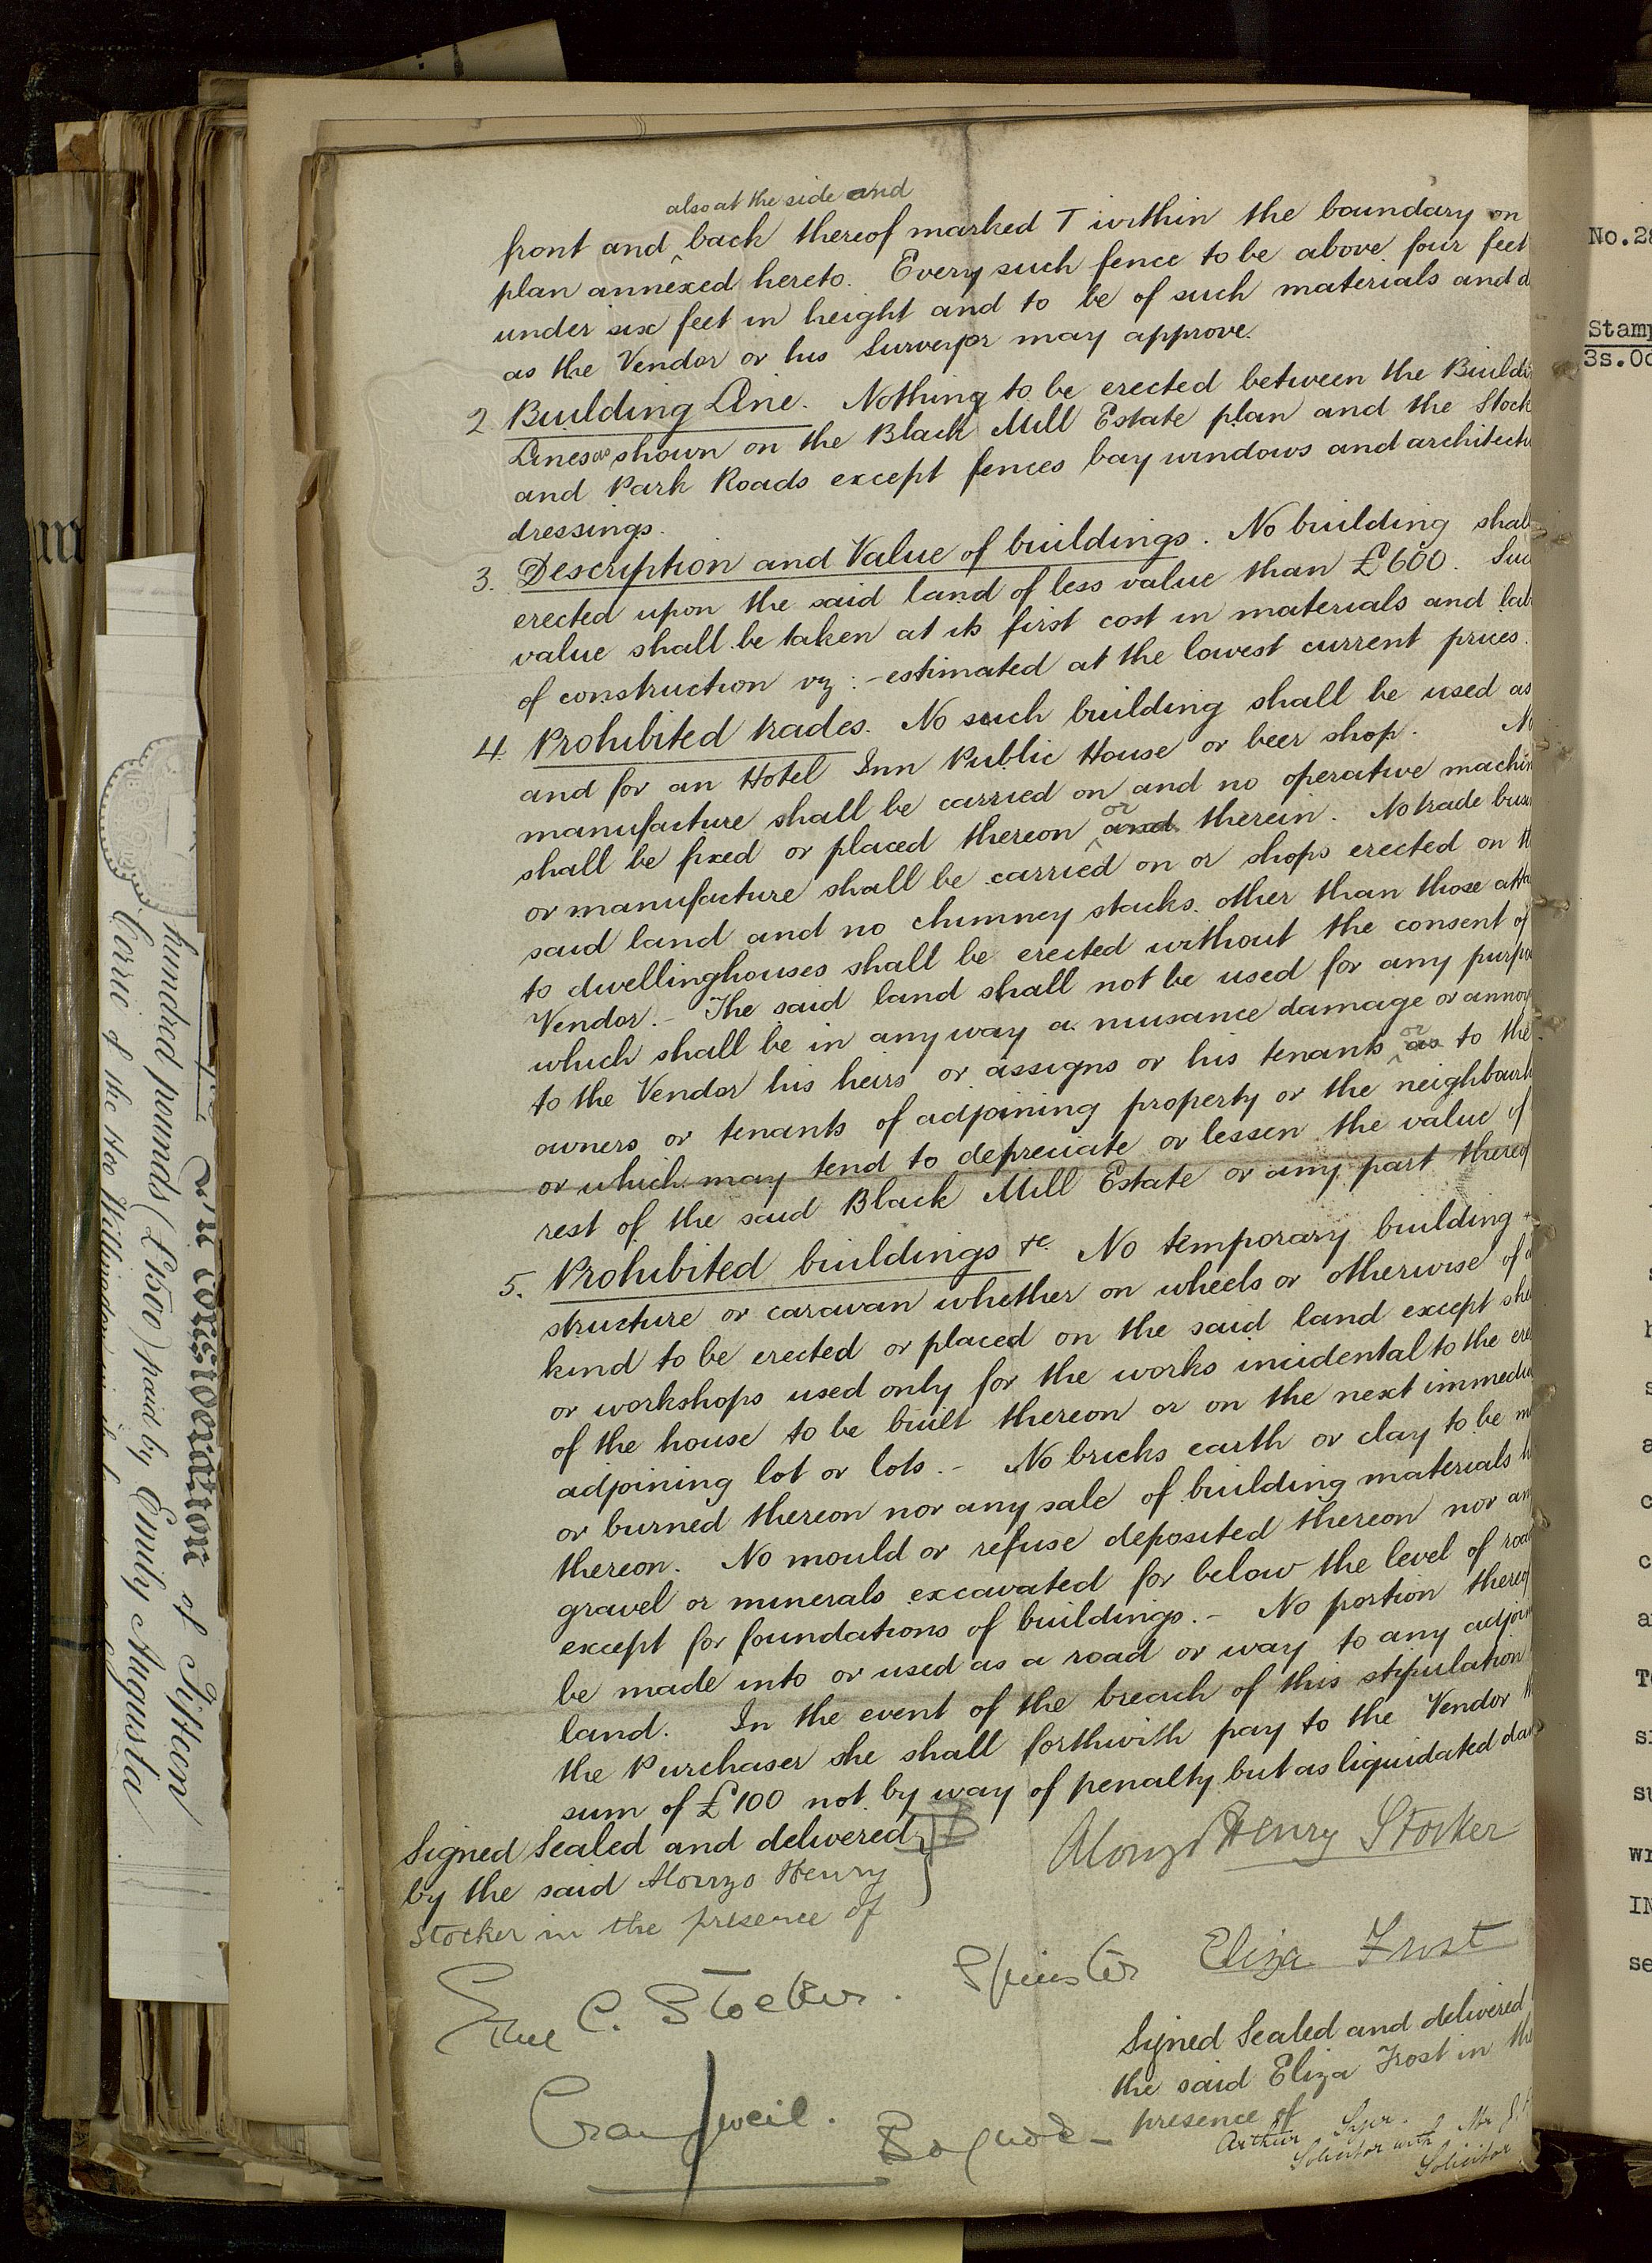 also at the side and
front and back thereof marked T within the boundary on
plan annexed hereto. Every such fence to be above four feet
under six feet in height and to be of such materials and d
as the Vendor or his Surveyor may approve.
2 Building Line. Nothing to be erected between the Buildi
Lines as shown on the Black Mill Estate plan and the Stock
and Park Roads except fences bay windows and architect
dressings.
3. Description and Value of buildings. No building shall
erected upon the said land of less value than £600. Suc
value shall be taken at its first cost in materials and lab
of construction viz :- estimated at the lowest current prices.
4. Prohibited trades. No such building shall be used as
and for an Hotel Inn Public House or beer shop. N
manufacture shall be carried on and no operative machin
shall be fixed or placed thereon or and therein. No trade busi
or manufacture shall be carried on or shops erected on th
said land and no chimney stacks other than those atta
to dwellinghouses shall be erected without the consent of
Vendor. - The said land shall not be used for any purpo
which shall be in any way a nuisance damage or annoy
to the Vendor his heirs or assigns or his tenants or as to the
owners or tenants of adjoining property or the neighbourh
or which may tend to depreciate or lessen the value of
rest of the said Black Mill Estate or any part thereof
5. Prohibited buildings &c. No temporary building
structure or caravan whether on wheels or otherwise of a
kind to be erected or placed on the said land except she
or workshops used only for the works incidental to the ere
of the house to be built thereon or on the next immedia
adjoining lot or lots. - No bricks earth or clay to be m
or burned thereon nor any sale of building materials h
thereon. No mould or refuse deposited thereon nor an
gravel or minerals excavated for below the level of road
except for foundations of buildings. - No portion thereof
be made into or used as a road or way to any adjoin
land. In the event of the breach of this stipulation
the Purchaser she shall forthwith pay to the Vendor th
sum of £100 not by way of penalty but as liquidated dam
Signed Sealed and delivered
by the said Alonzo Henry
Stocker in the presence of
Alonzo Henry Stocker
C. Stocker. Spinster
Eliza Frost
Craigweil.
Bognor
Signed Sealed and delivered
the said Eliza Frost in the
presence of
Arthur
Solicitor with Mr
Solicitor
In consideration of Fifteen
hundred pounds (£1500) paid by Emily Augusta
Corrie of the
No.28
Stamp
3s.0d